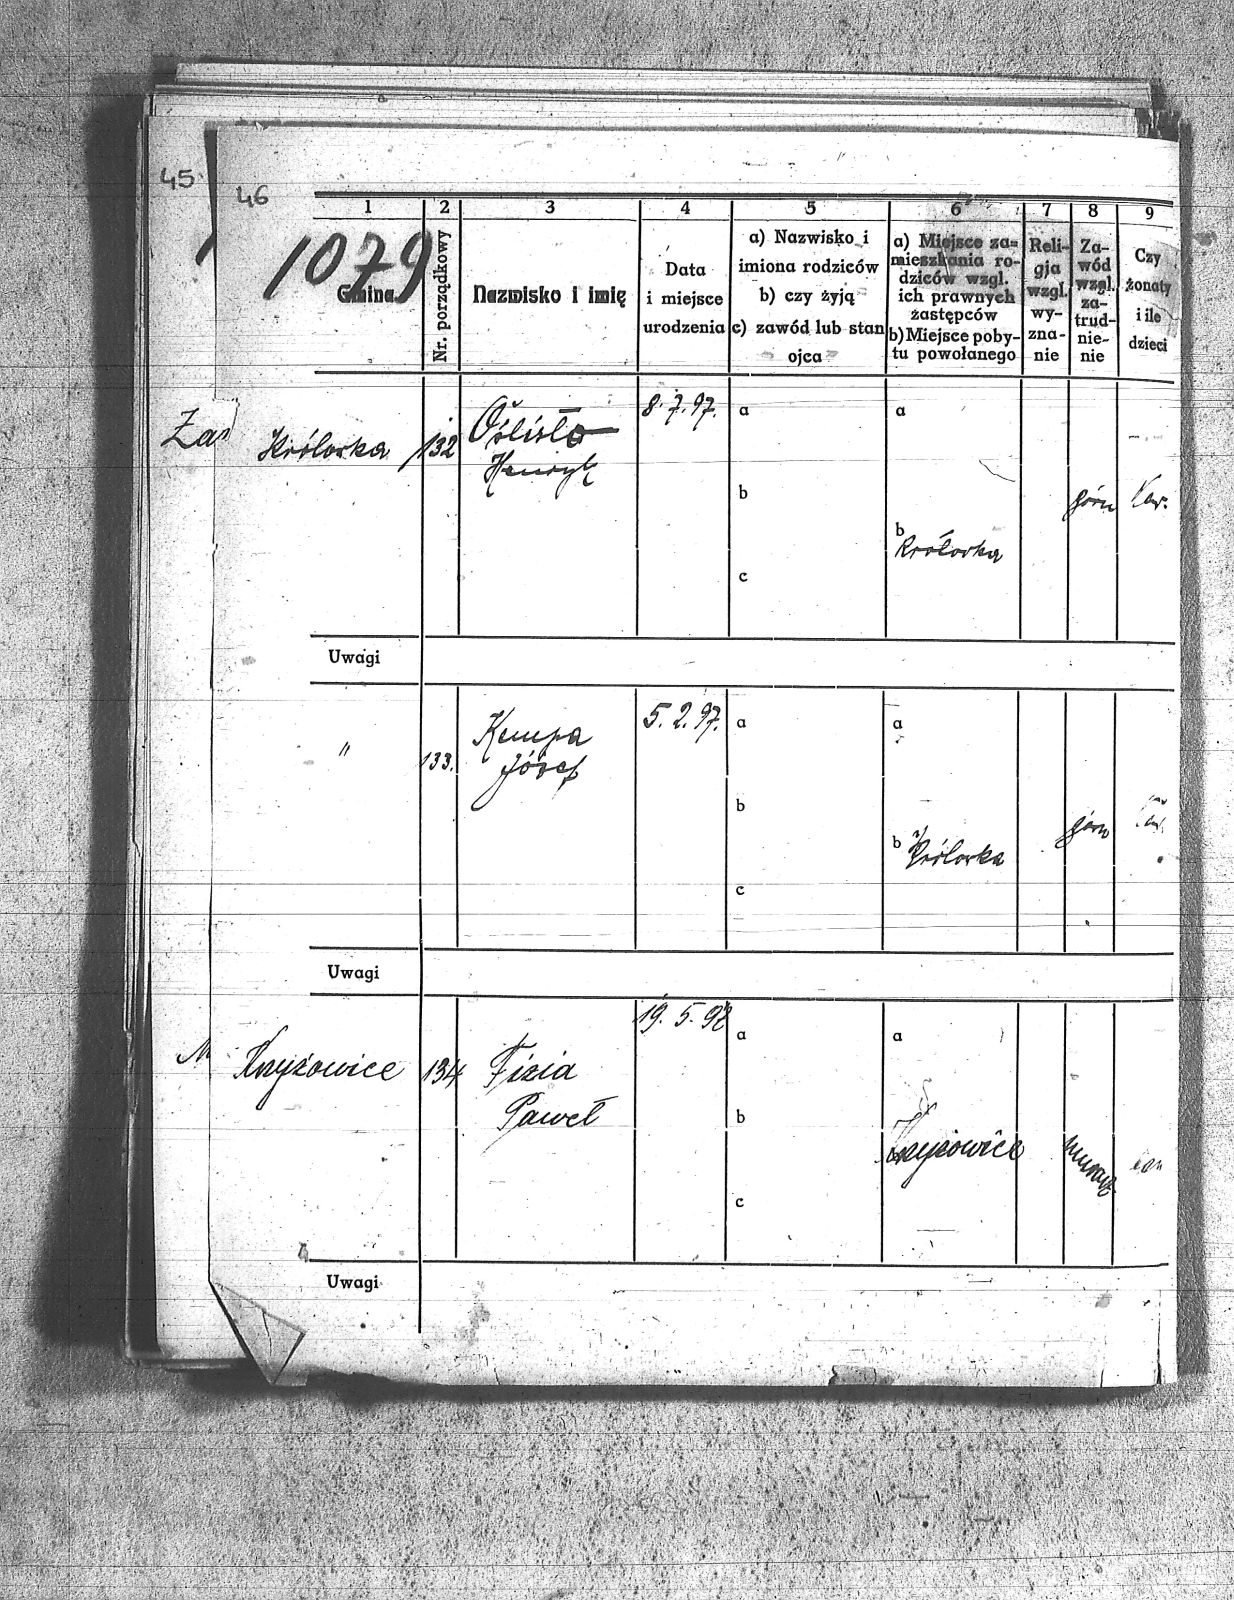 45
46
1 2 3 4 5 6 7 8 9
1079
Gmina
Nr. porządkowy
Nazwisko i imię
Data
i miejsce
urodzenia
a) Nazwisko i
imiona rodziców
b) czy żyją
c) zawód lub stan
ojca
a) Miejsce za=
mieszkania ro-
dziców wzgl.
ich prawnych
zastępców
b) Miejsce poby-
tu powołanego
Reli-
gja
wzgl.
wy-
zna-
nie
Za-
wód
wzgl.
za-
trud-
nie-
nie
Czy
żonaty
i ile
dzieci
Królowka 132
Oślislo
Henryk
8.7.97.
a
b
c
a
b
Królowka
górn
Kaw.
Uwagi
" 133.
Kempa
Józef
5.2.97.
a
b
c
a
b Królowka
górn
Uwagi
Krzyżowice 134
Fizia
Paweł
19.5.98
a
b
c
a
Krzyżowice
murarz
Uwagi